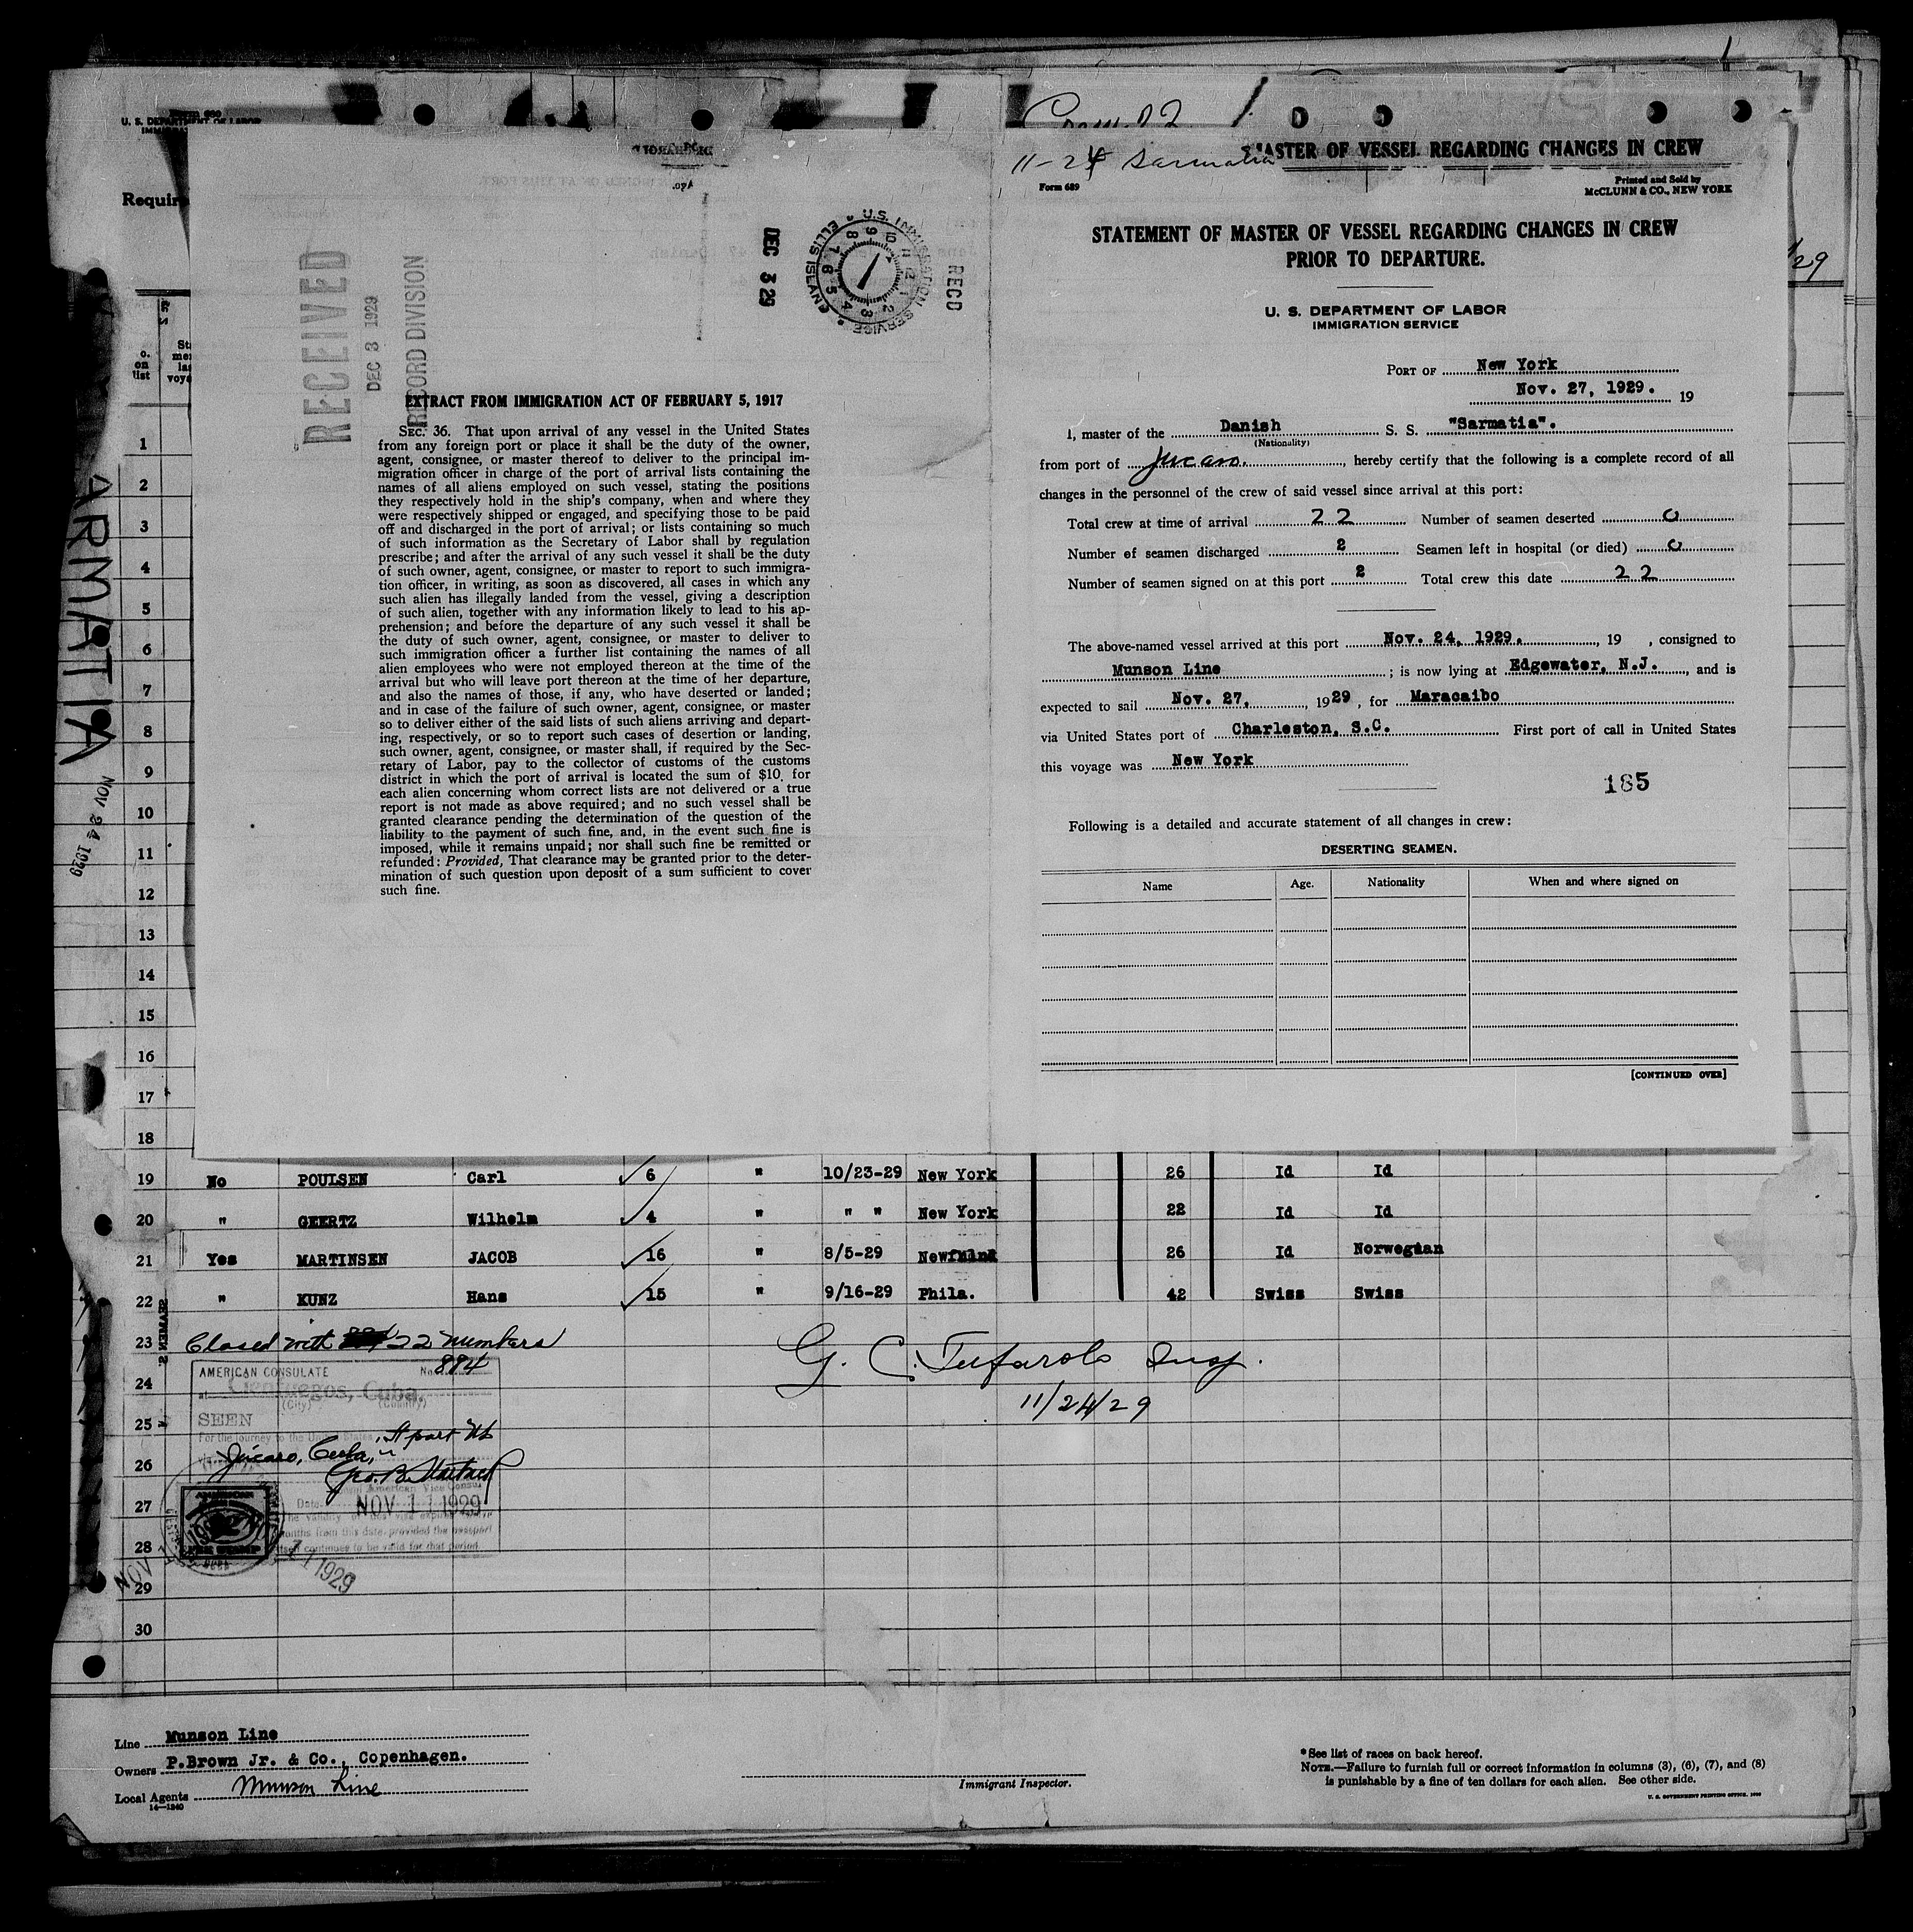 U. S. DEPARTMENT OF LABOR
Crew 22
11-24 Sarmatia
MASTER OF VESSEL REGARDING CHANGES IN CREW
Form 689
Printed and Sold by
McCLUNN & CO., NEW YORK
STATEMENT OF MASTER OF VESSEL REGARDING CHANGES IN CREW
PRIOR TO DEPARTURE.
U. S. DEPARTMENT OF LABOR
IMMIGRATION SERVICE
PORT OF New York
Nov. 27, 1929. 19
I, master of the Danish S. S. "Sarmatia".
(Nationality)
from port of Jucaro. , hereby certify that the following is a complete record of all
changes in the personnel of the crew of said vessel since arrival at this port:
Total crew at time of arrival 22 Number of seamen deserted 0
Number of seamen discharged 2 Seamen left in hospital (or died) 0
Number of seamen signed on at this port 2 Total crew this date 22
The above-named vessel arrived at this port Nov. 24, 1929. , 19 , consigned to
Munson Line ; is now lying at Edgewater, N.J. , and is
expected to sail Nov. 27, , 1929 , for Maracaibo
via United States port of Charleston, S.C. First port of call in United States
this voyage was New York
185
Following is a detailed and accurate statement of all changes in crew:
DESERTING SEAMEN.
Name Age. Nationality When and where signed on
[CONTINUED OVER]
RECEIVED
DEC 3 1929
RECORD DIVISION
DEC 3 29
U.S. IMMIGRATION SERVICE
ELLIS ISLAND
RECD
EXTRACT FROM IMMIGRATION ACT OF FEBRUARY 5, 1917
SEC. 36. That upon arrival of any vessel in the United States
from any foreign port or place it shall be the duty of the owner,
agent, consignee, or master thereof to deliver to the principal im-
migration officer in charge of the port of arrival lists containing the
names of all aliens employed on such vessel, stating the positions
they respectively hold in the ship's company, when and where they
were respectively shipped or engaged, and specifying those to be paid
off and discharged in the port of arrival; or lists containing so much
of such information as the Secretary of Labor shall by regulation
prescribe; and after the arrival of any such vessel it shall be the duty
of such owner, agent, consignee, or master to report to such immigra-
tion officer, in writing, as soon as discovered, all cases in which any
such alien has illegally landed from the vessel, giving a description
of such alien, together with any information likely to lead to his ap-
prehension; and before the departure of any such vessel it shall be
the duty of such owner, agent, consignee, or master to deliver to
such immigration officer a further list containing the names of all
alien employees who were not employed thereon at the time of the
arrival but who will leave port thereon at the time of her departure,
and also the names of those, if any, who have deserted or landed;
and in case of the failure of such owner, agent, consignee, or master
so to deliver either of the said lists of such aliens arriving and depart-
ing, respectively, or so to report such cases of desertion or landing,
such owner, agent, consignee, or master shall, if required by the Sec-
retary of Labor, pay to the collector of customs of the customs
district in which the port of arrival is located the sum of $10 for
each alien concerning whom correct lists are not delivered or a true
report is not made as above required; and no such vessel shall be
granted clearance pending the determination of the question of the
liability to the payment of such fine, and, in the event such fine is
imposed, while it remains unpaid; nor shall such fine be remitted or
refunded: Provided, That clearance may be granted prior to the deter-
mination of such question upon deposit of a sum sufficient to cover
such fine.
ARMATIA
NOV 24 1929
1
2
3
4
5
6
7
8
9
10
11
12
13
14
15
16
17
18
19 No POULSEN Carl 6 " 10/23-29 New York 26 Id Id
20 " GEERTZ Wilhelm 4 " " " New York 22 Id Id
21 Yes MARTINSEN JACOB 16 " 8/5-29 26 Id Norwegian
22 " KUNZ Hans 15 " 9/16-29 Phila. 42 Swiss Swiss
23 Closed with 22 Numbers
G. C. Tufarolo Insp.
11/24/29
24
25
26
27
28
29
30
AMERICAN CONSULATE No. 894
at Cienfuegos, Cuba.
(City) (Country)
SEEN
For the journey to the United States
Jucaro, Cuba,
American Vice Consul
Date NOV 11 1929
months from this date, provided the passport
itself continues to be valid for that period.
Line Munson Line
Owners P.Brown Jr. & Co., Copenhagen.
Local Agents Munson Line
14—1240
Immigrant Inspector.
* See list of races on back hereof.
NOTE.—Failure to furnish full or correct information in columns (3), (6), (7), and (8)
is punishable by a fine of ten dollars for each alien. See other side.